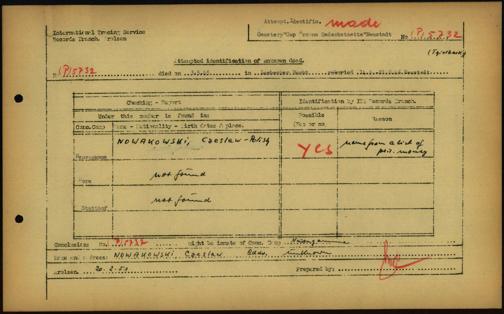 Attempt. Identific. made
International Tracing Service
Records Branch, Arolsen
Cemetery "Cap Arcona Gedenkstaette" Neustadt
No (P) 5732
Attempted identification of unknown dead.
N (P) 5732 died on 3.5.45 in Neustadt
Checking - Report
Identification by ITS Records Branch.
Under this number is found in:
Possible
Reason
Conc.Camp Name - Nationality - Birth dates & place.
(Yes or no)
NOWAKOWSKI, Czeslaw - Polish
YES
name from a list of
pris. money
Neuengamme
not found
Stutthof
not found
Conclusion: No. (P) 5732 might be inmate of Conc. Camp Neuengamme
NOWAKOWSKI, Czeslaw unknown
Arolsen, 20.2.51 Prepared by: